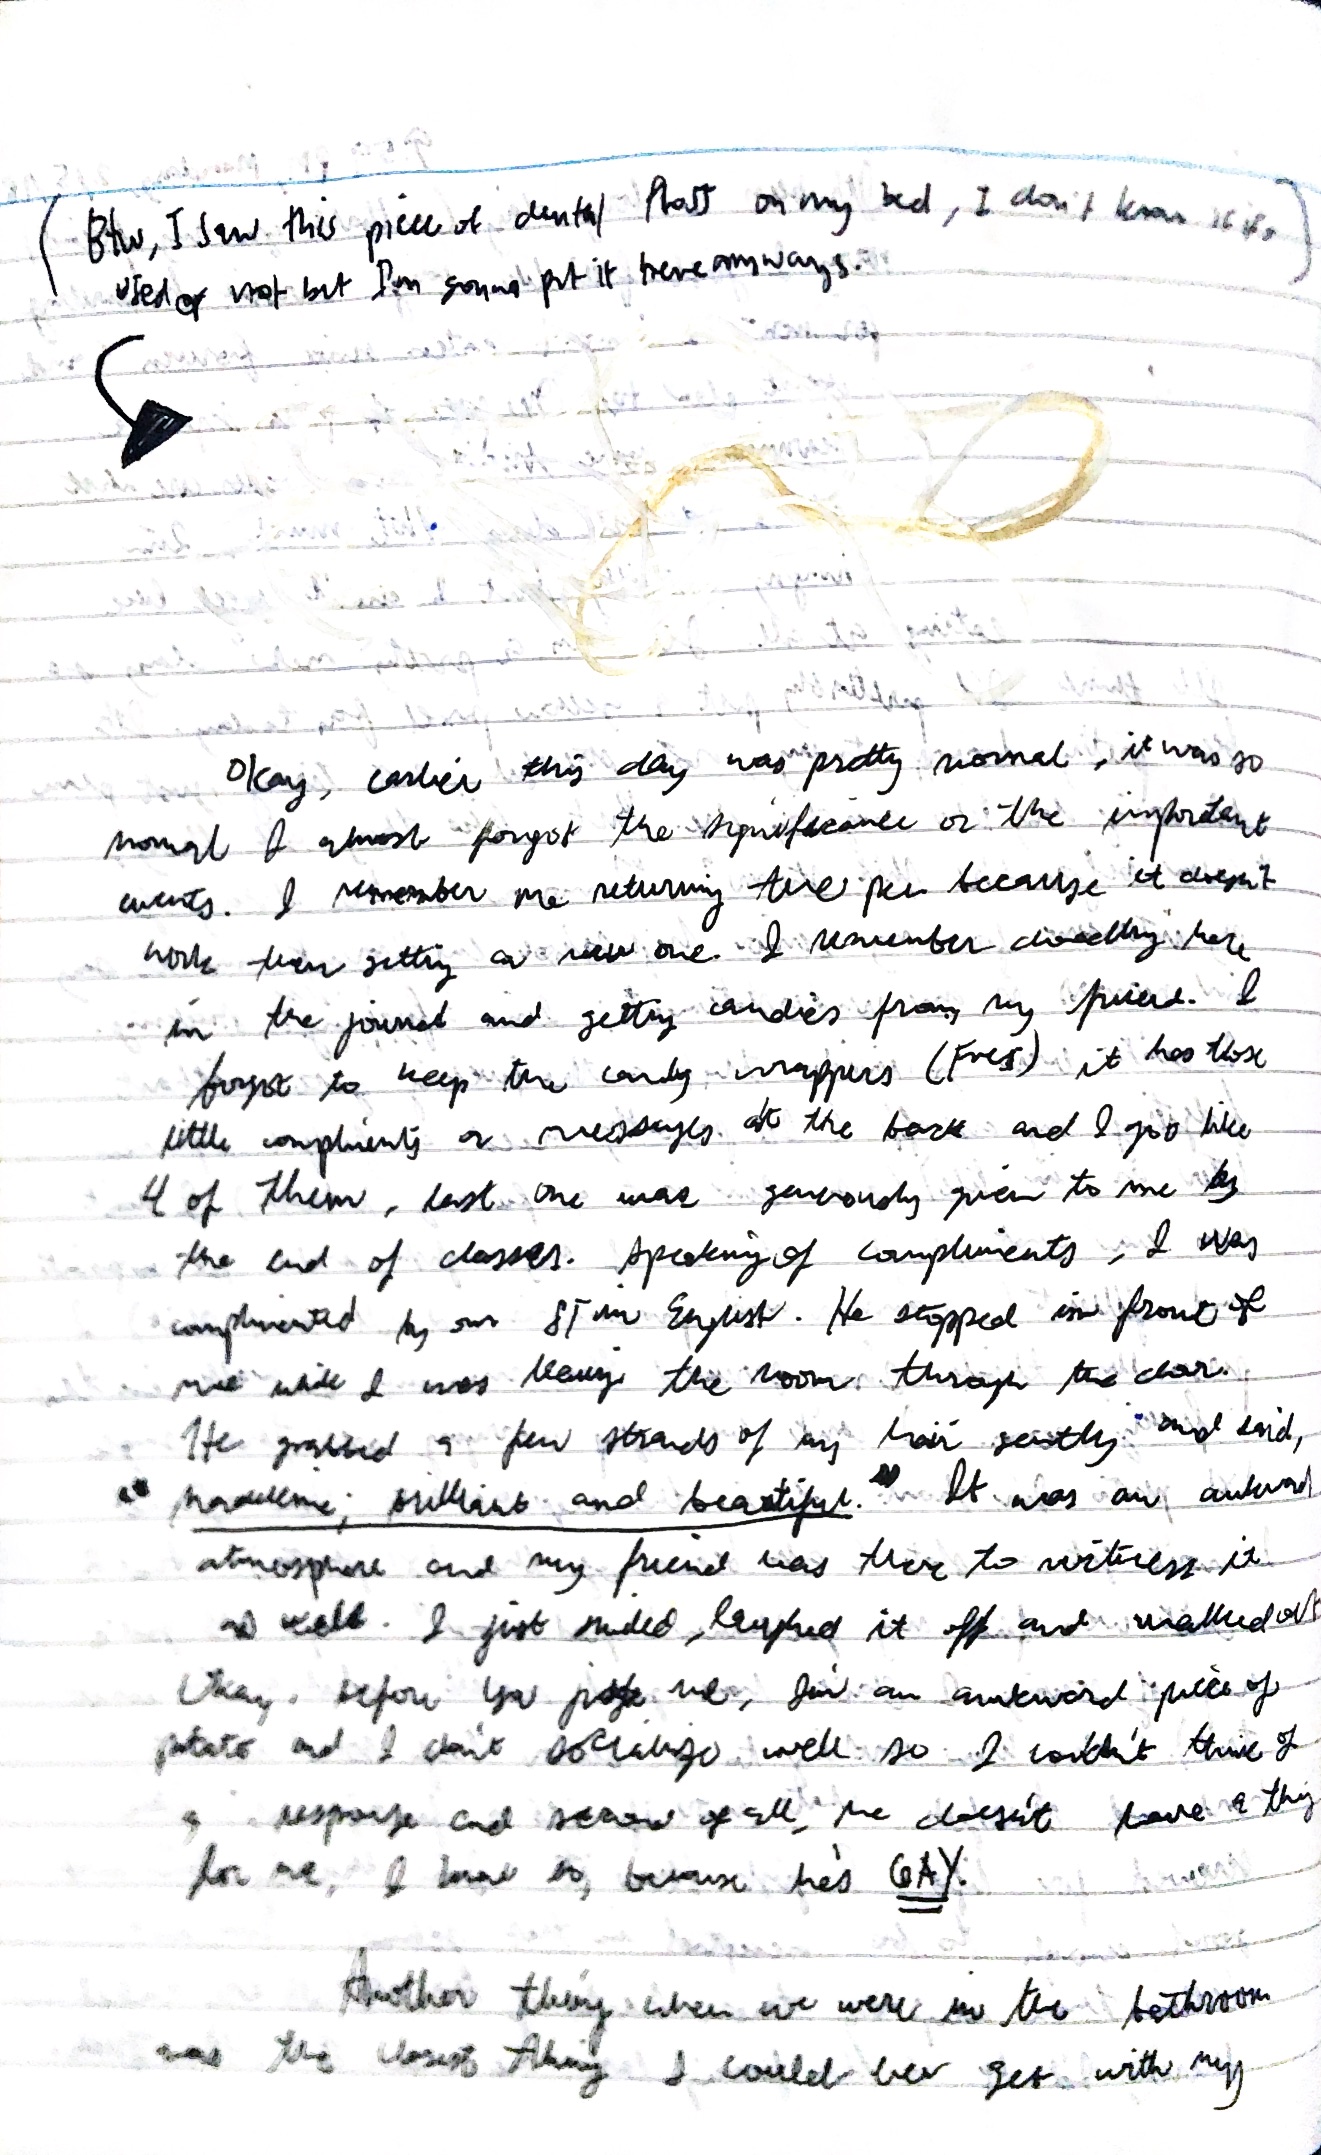 (Btw, I saw this piece of dental floss on my bed, I don't know if it's)
used or not but I'm gonna put it here anyways.
Okay, earlier this day was pretty normal, it was so
normal I almost forgot the significance or the important
events. I remember me returning the pen because it doesn't
work then getting a new one. I remember doodling here
in the journal and getting candies from my friend. I
forgot to keep the candy wrappers (Fres) it has those
little compliments or messages at the back and I got like
4 of them, last one was generously given to me by
the end of classes. Speaking of compliments, I was
complimented by our ST in English. He stopped in front of
me while I was leaving the room through the door.
He grabbed a few strands of my hair gently and said,
" Madeleine, brilliant and beautiful." It was an awkward
atmosphere and my friend was there to witness it
as well. I just smiled, laughed it off and walked out
Okay, before ya judge me, I'm an awkward piece of
potato and I don't socialize well so I couldn't think of
a response and second of all, he doesn't have a thing
for me, I know so, because he's GAY.
Another thing when we were in the bathroom
was the closest thing I could ever get with my